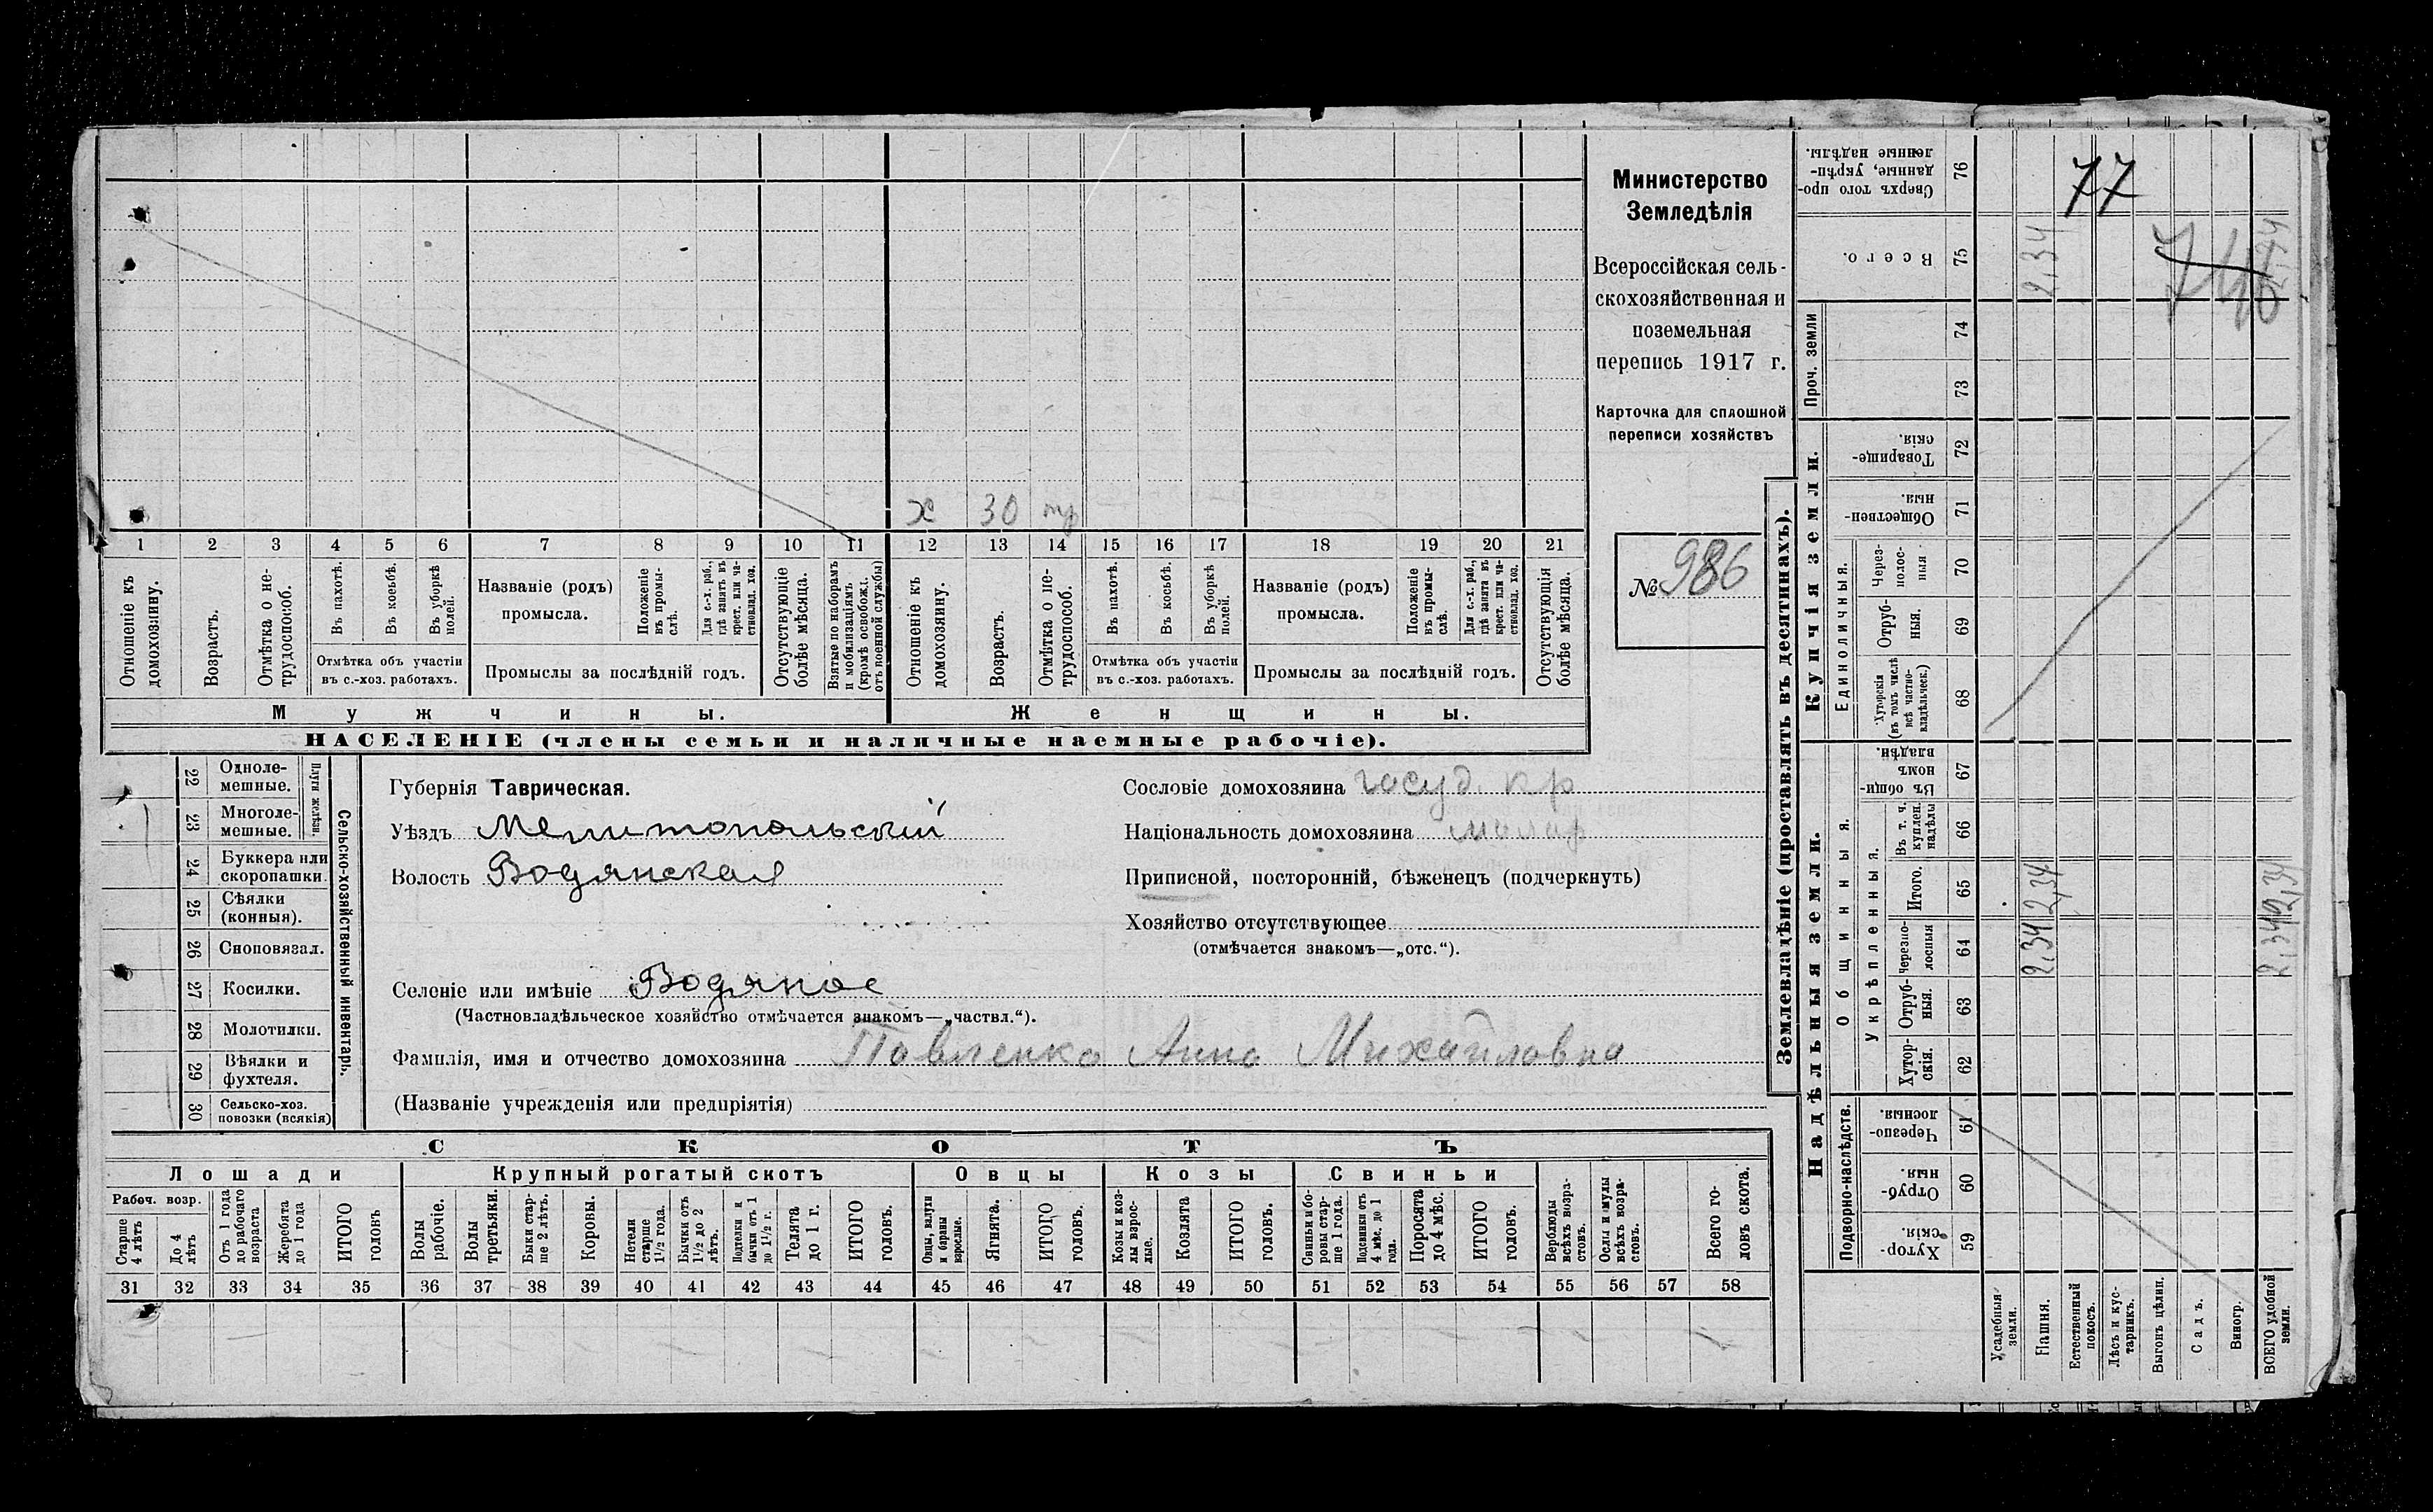 Министерство
Земледѣлія
Всероссійская сель-
скохозяйственная и
поземельная
перепись 1917 г.
Карточка для сплошной
переписи хозяйствъ
№ 986
х 30 тр
1 2 3 4 5 6 7 8 9 10 11 12 13 14 15 16 17 18 19 20 21
Отношеніе къ домохозяину.
Возрастъ.
Отмѣтка о не-трудоспособ.
Въ пахотѣ.
Въ косьбѣ.
Въ уборкѣ полей.
Отмѣтка объ участіи
въ с.-хоз. работахъ.
Названіе (родъ)
промысла.
Положеніе въ промы-слѣ.
Для с.-х. раб., гдѣ занятъ въ крест. или ча-стновлад. хоз.
Промыслы за послѣдній годъ.
Отсутствующіе болѣе мѣсяца.
Взятые по наборамъ и мобилизаціямъ (кромѣ освобожд. отъ военной службы)
Отношеніе къ домохозяину.
Возрастъ.
Отмѣтка о не-трудоспособ.
Въ пахотѣ.
Въ косьбѣ.
Въ уборкѣ полей.
Отмѣтка объ участіи
въ с.-хоз. работахъ.
Названіе (родъ)
промысла.
Положеніе въ промы-слѣ.
Для с.-х. раб., гдѣ занята въ крест. или ча-стновлад. хоз.
Промыслы за послѣдній годъ.
Отсутствующія болѣе мѣсяца.
Мужчины.
Женщины.
НАСЕЛЕНІЕ (члены семьи и наличные наемные рабочіе).
Сельско-хозяйственный инвентарь.
Плуги желѣзн.
22 Одноле-мешные.
23 Многоле-мешные.
24 Буккера или скоропашки.
25 Сѣялки (конныя).
26 Сноповязал.
27 Косилки.
28 Молотилки.
29 Вѣялки и фухтеля.
30 Сельско-хоз. повозки (всякія)
Губернія Таврическая.
Уѣздъ Мелитопольскій
Волость Водянская
Селеніе или имѣніе Водяное
(Частновладѣльческое хозяйство отмѣчается знакомъ—„частвл.“).
Фамилія, имя и отчество домохозяина Павленко Анна Михайловна
(Названіе учрежденія или предпріятія)
Сословіе домохозяина госуд. кр
Національность домохозяина малор
Приписной, посторонній, бѣженецъ (подчеркнуть)
Хозяйство отсутствующее
(отмѣчается знакомъ—„отс.“).
СКОТЪ
Лошади
Крупный рогатый скотъ
Овцы
Козы
Свиньи
Рабоч. возр.
Старше 4 лѣтъ
До 4 лѣтъ
Отъ 1 года до рабочаго возраста
Жеребята до 1 года
ИТОГО головъ
Волы рабочіе.
Волы третьяки.
Быки стар-ше 2 лѣтъ.
Коровы.
Нетели старше 1½ года.
Бычки отъ 1½ до 2 лѣтъ.
Подтелки и бычки отъ 1 до 1½ г.
Телята до 1 г.
ИТОГО головъ.
Овцы, валухи и бараны взрослые.
Ягнята.
ИТОГО головъ.
Козы и коз-лы взрос-лые.
Козлята
ИТОГО головъ.
Свиньи и бо-ровы стар-ше 1 года.
Подсвинки отъ 4 мѣс. до 1 года.
Поросята до 4 мѣс.
ИТОГО головъ.
Верблюды всѣхъ возра-стовъ.
Ослы и мулы всѣхъ возра-стовъ.
Всего го-ловъ скота.
31 32 33 34 35 36 37 38 39 40 41 42 43 44 45 46 47 48 49 50 51 52 53 54 55 56 57 58
Землевладѣніе (проставлять въ десятинахъ).
Сверхъ того про-данные, укрѣп-ленные надѣлы. 76
77
Всего. 75
2,34
746
2,34
Проч. земли
74
73
Купчія земли.
Товарище-скія. 72
Обществен-ныя. 71
Единоличныя.
Через-полос-ныя 70
Отруб-ныя. 69
Хуторскія (въ томъ числѣ всѣ частно-владѣльческ.) 68
Надѣльныя земли.
Общинныя.
Въ общин-номъ владѣн. 67
Укрѣпленныя.
Въ т. ч. куплен. надѣлы 66
Итого. 65
2,34
2,34
Черезпо-лосныя 64
2,34
2,34
Отруб-ныя. 63
Хутор-скія. 62
Подворно-наслѣдств.
Черезпо-лосныя. 61
Отруб-ныя. 60
Хутор-скія. 59
Усадебныя земли.
Пашня.
Естественный покосъ.
Лѣсъ и кус-тарникъ.
Выгонъ цѣлин.
Садъ.
Виногр.
ВСЕГО удобной земли.